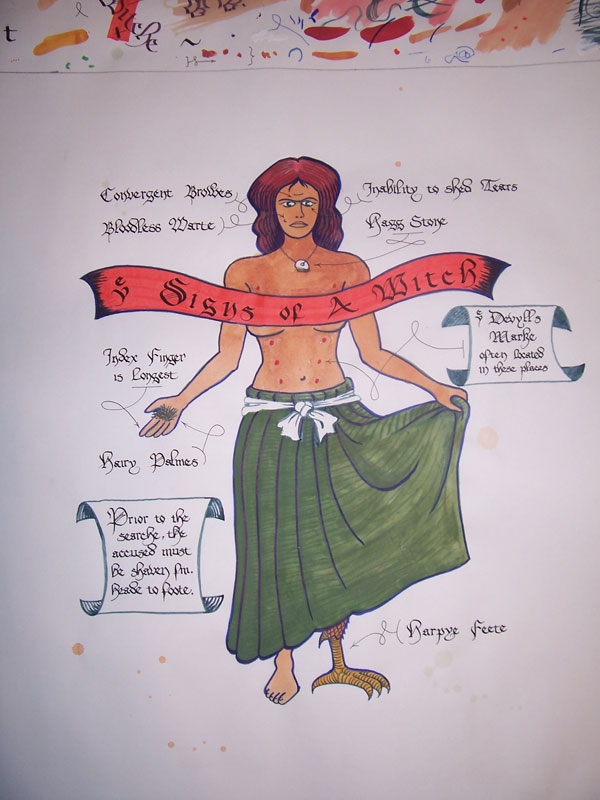 t
Convergent Browes
Inability to shed Tears
Bloodless Warte
Hagg Stone
ẙ Signs of A Witch
ẙ Devylls
Marke
often located
in these places
Index Finger
is Longest
Hairy Palmes
Prior to the
searche, the
accused must
be shaven fm.
heade to foote.
Harpye Feete